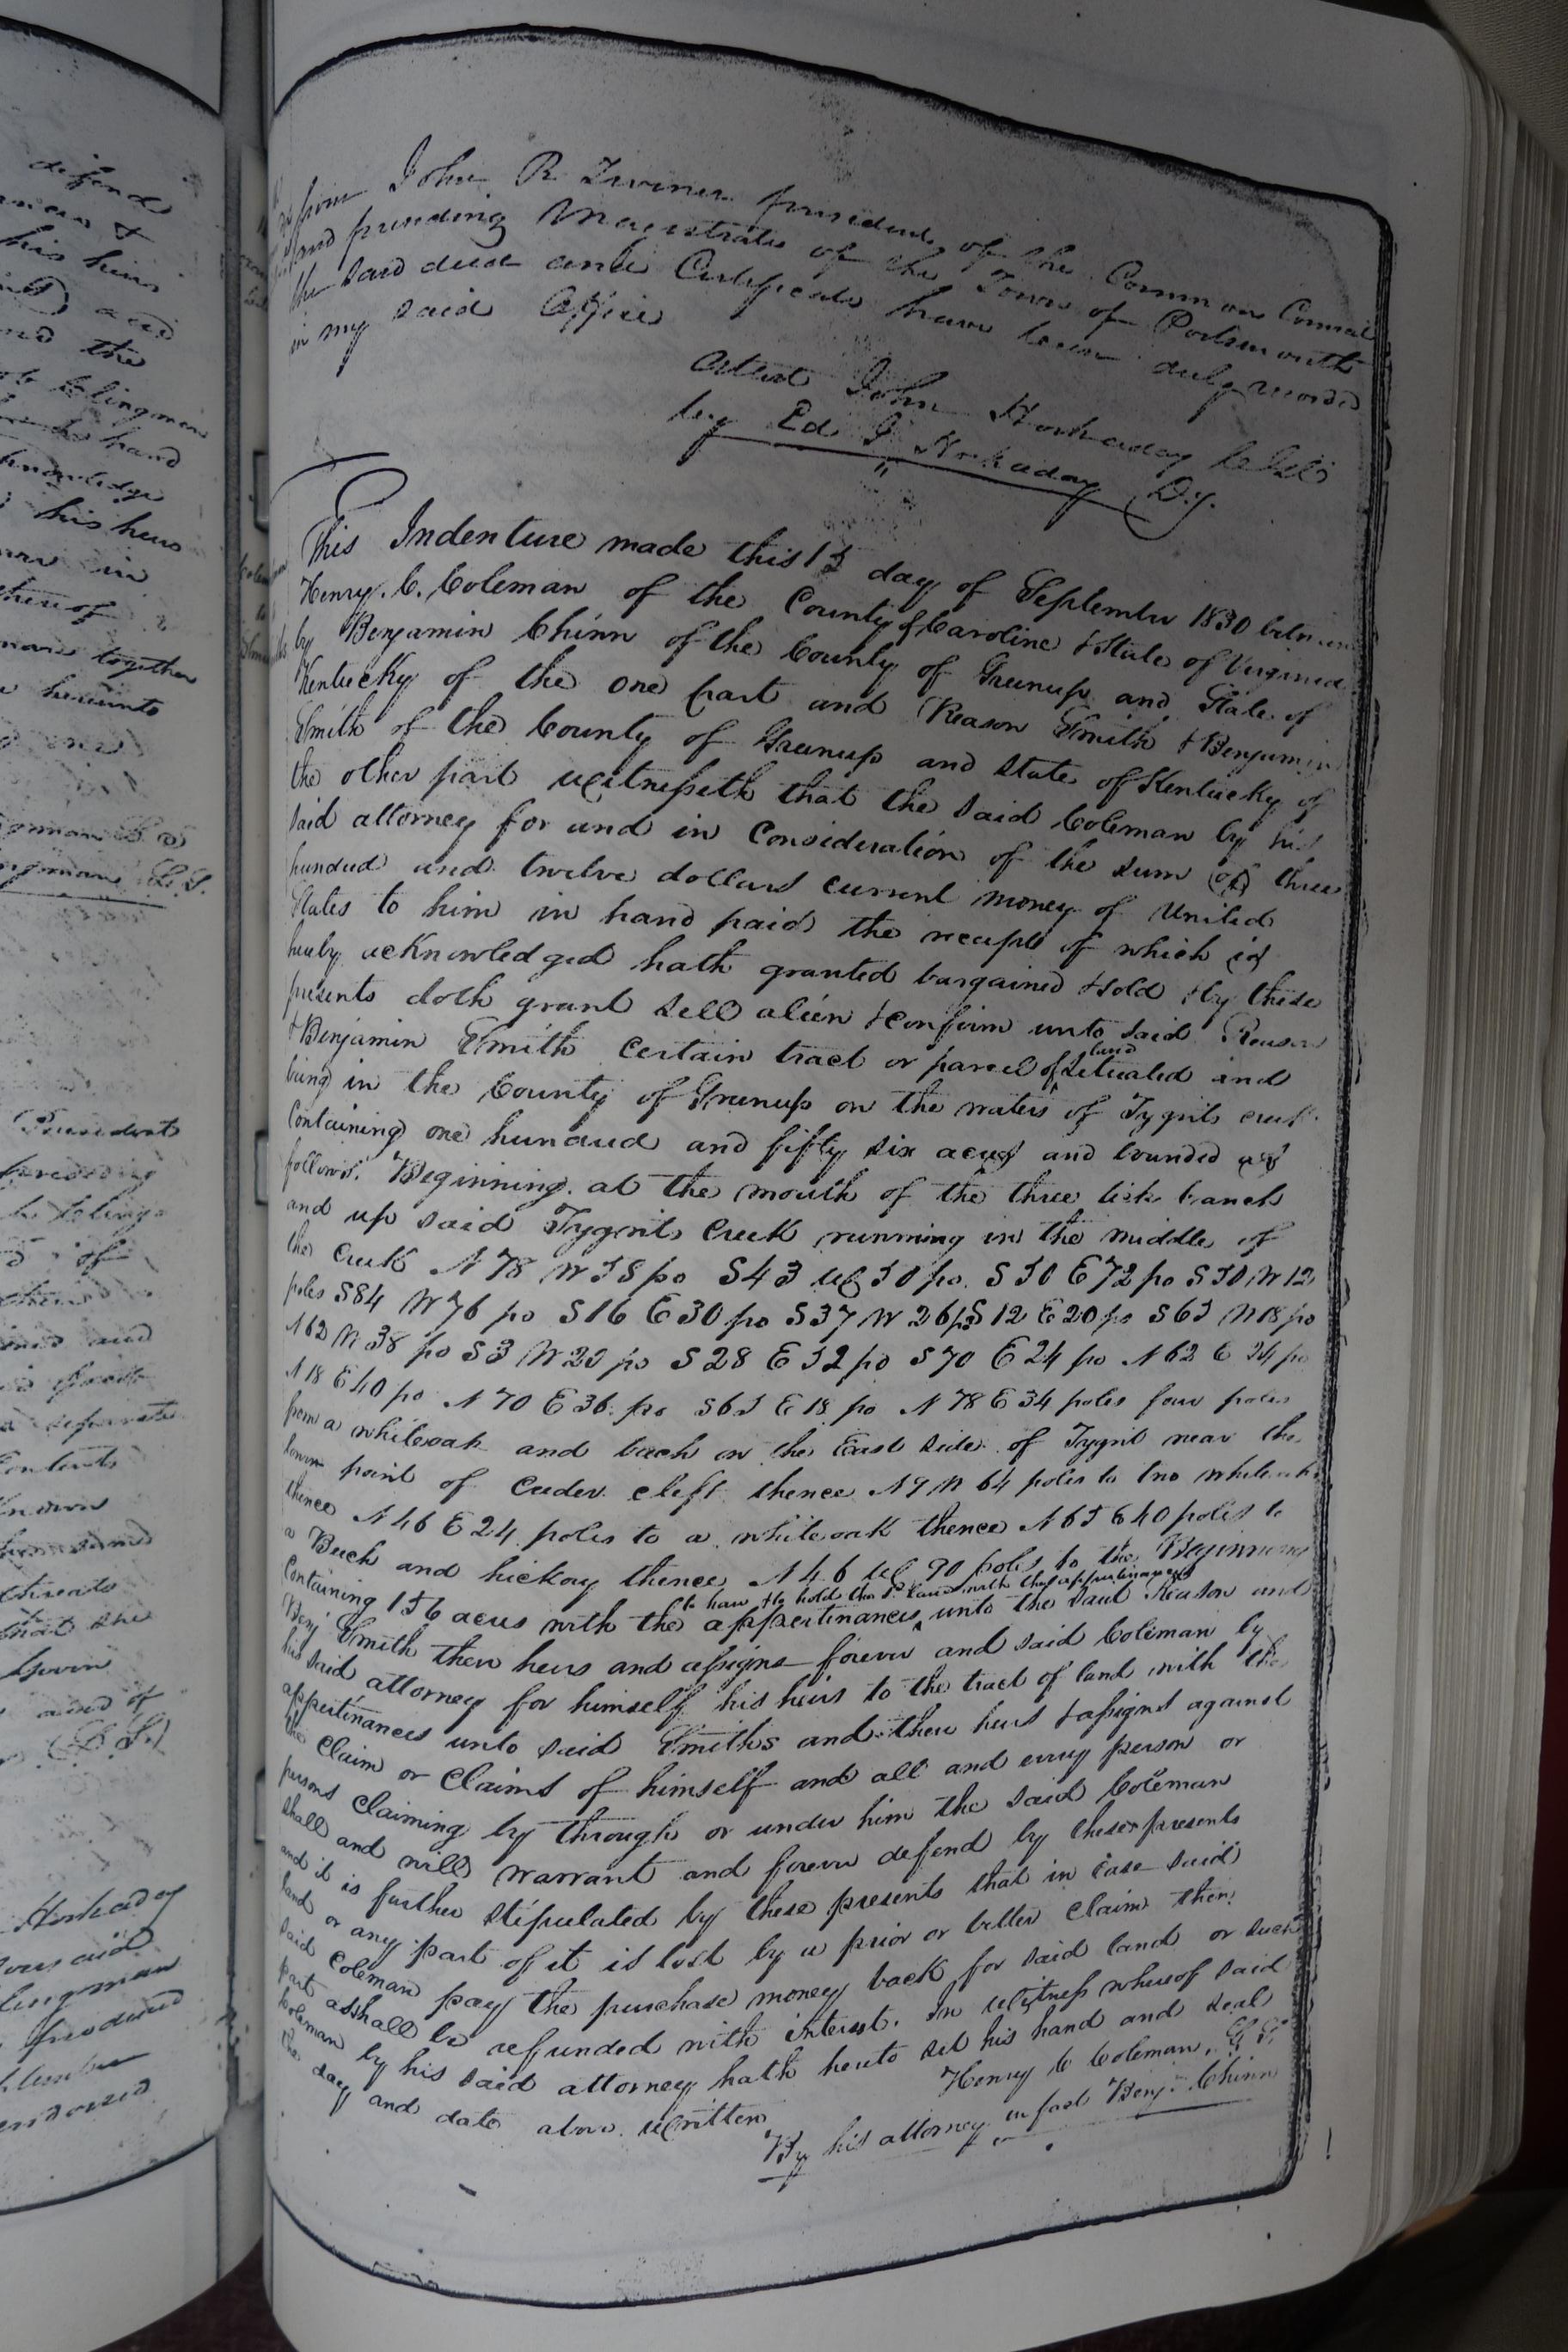 defend
his heirs
and the
Clingman
hand
his heirs
in
thereof
together
hereunto
President
of
and
Contents
Known
that she
and of
(L.S.)
Hockaday
Clingman
produced
endorsed
from John R. Turner president of the Common Council
and presiding Magistrate of the Town of Portsmouth
the said deed and Certificate have been duly recorded
in my said Office
Attest John Hockaday Clk
by Ed. J Hockaday D.C.
This Indenture made this 15 day of September 1830 between
Henry. C. Coleman of the County of Caroline & State of Virginia
by Benjamin Chinn of the County of Greenup and State of
Kentucky of the one part and Reason Smith & Benjamin
Smith of the County of Greenup and State of Kentucky of
the other part witnesseth that the said Coleman by his
said attorney for and in Consideration of the sum of three
hundred and twelve dollars current money of United
States to him in hand paid the receipt of which is
hereby acknowledged hath granted bargained & sold & by these
presents doth grant sell alien & confirm unto said Reason
& Benjamin Smith certain tract or parcel of land situated and
being in the County of Greenup on the waters of Tygrits creek
Containing one hundred and fifty six acres and bounded as
follows. Beginning at the mouth of the three lick branch
and up said Tygrits Creek running in the middle of
the Creek N 78 W 58 po S 43 W 50 po. S 50 E 72 po S 50 W 12
poles S 84 W 76 po S 16 E 30 po S 37 W 26 po S 12 E 20 po S 65 W 18 po
N 62 W 38 po S 3 W 20 po S 28 E 52 po S 70 E 24 po N 62 E 24 po
N 18 E 40 po N 70 E 36 po S 65 E 18 po N 78 E 34 poles four poles
from a whiteoak and beech on the East side of Tygrit near the
lower point of Ceder cleft thence N 9 W 64 poles to two whiteoaks
thence N 46 E 24 poles to a whiteoak thence N 65 E 40 poles to
a Beech and hickory thence N 46 W 90 poles to the Beginning
to have & to hold the sd. land with the appertinances
Containing 156 acres with the appertinances unto the said Reason and
Benj Smith their heirs and assigns forever and said Coleman by
his said attorney for himself his heirs to the tract of land with the
appertinances unto said Smiths and their heirs & assigns against
the Claim or Claims of himself and all and every person or
persons claiming by through or under him the said Coleman
shall and will warrant and forever defend by these presents
and it is further stipulated by these presents that in case said
land or any part of it is lost by a prior or better claim then
said Coleman pay the purchase money back for said land or such
part as shall be refunded with interest. In witness whereof said
Coleman by his said attorney hath hereto set his hand and seal
the day and date above written
Henry C Coleman
By his attorney in fact Benj. Chinn